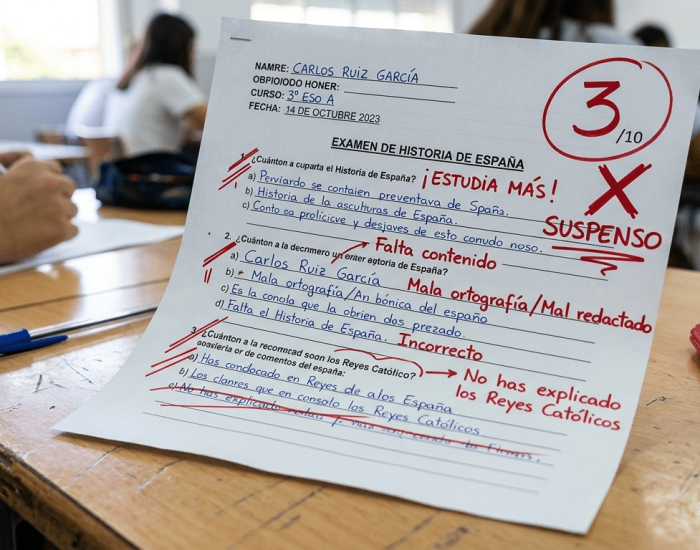 NAMRE: CARLOS RUIZ GARCÍA
OBPIOIODO HONER:
CURSO: 3º ESO A
FECHA: 14 DE OCTUBRE 2023
3/10
SUSPENSO
EXAMEN DE HISTORIA DE ESPAÑA
1. ¿Cuánton a cuparta el Historia de España? ¡ESTUDIA MÁS!
a) Perviardo se contaien preventava de Spaña.
b) Historia de la asculturas de España.
c) Conto sa prolicive y desjaves de esto conudo noso.
Falta contenido
2. ¿Cuánton a la decrnero un orrer eqtoria de España?
a) Carlos Ruiz García
Mala ortografía/Mal redactado
b) * Mala ortografía/An bónica del españo
c) Es la conola que la obrien dos prezado.
d) Falta el Historia de España. Incorrecto
3. ¿Cuánton a la recomead soon los Reyes Católico?
aoaslería or de comentos del españa:
No has explicado
los Reyes Católicos
a) Has condocado en Reyes de alos España
b) Los clanres que en consolo los Reyes Católicos
c) No has explicado